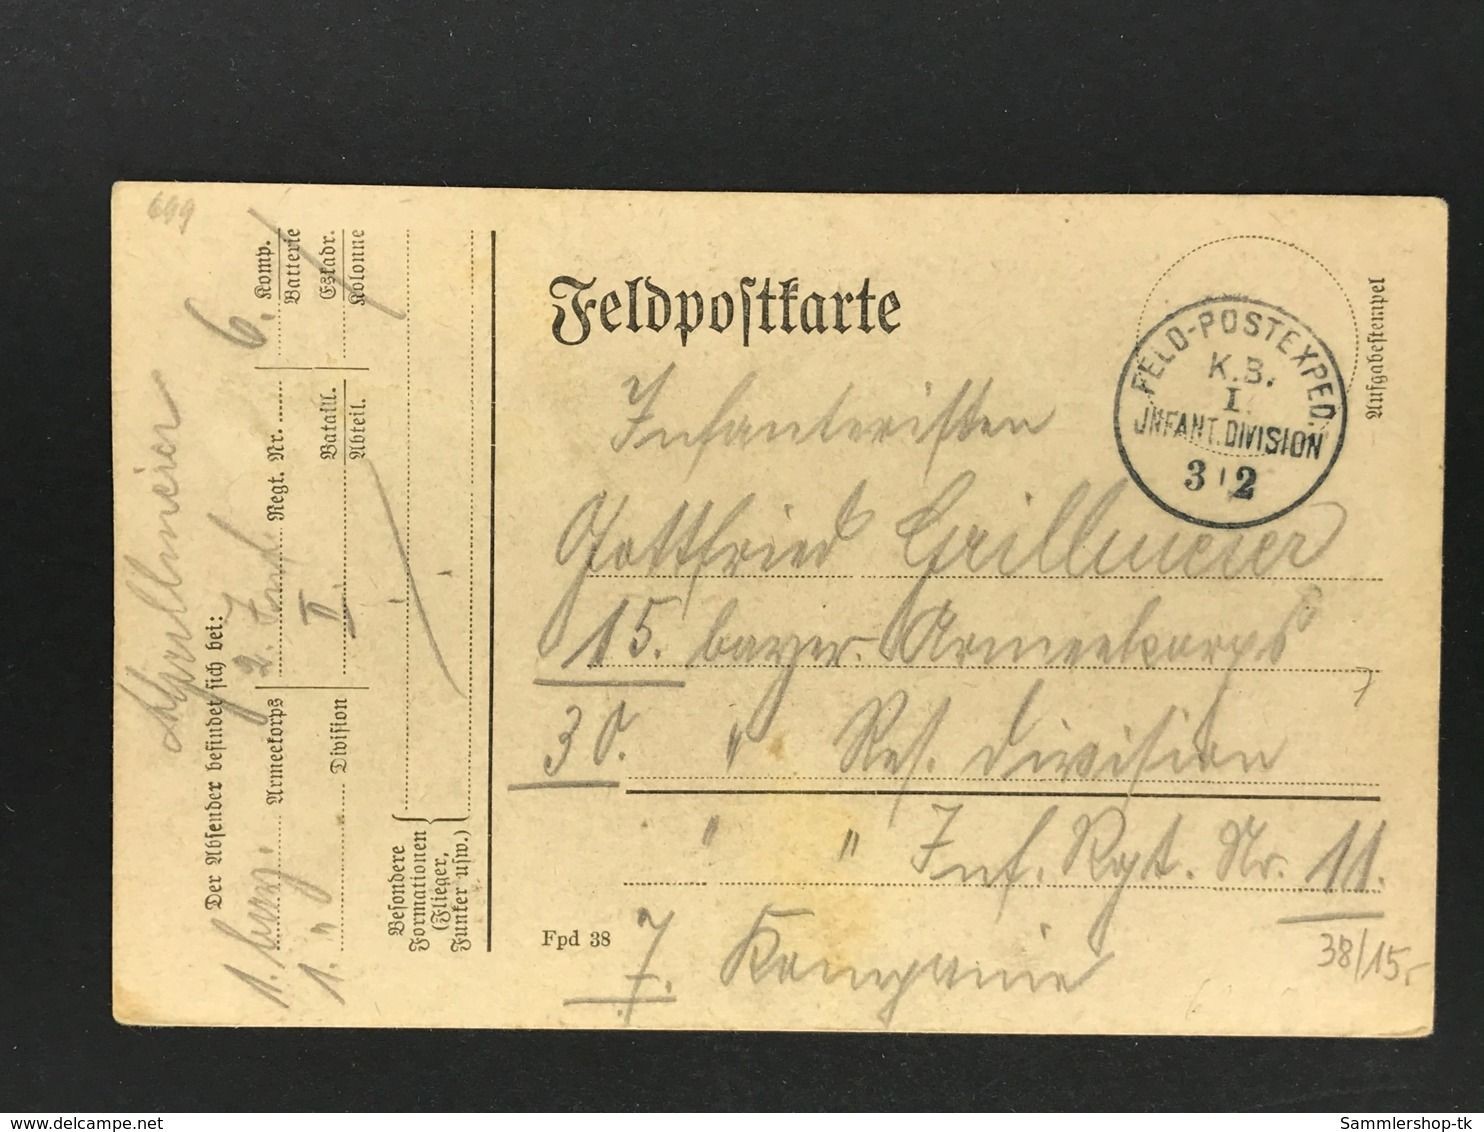 699
Feldpostkarte
Aufgabestempel
FELD-POSTEXPED.
K.B.
I.
JNFANT.DIVISION
3 2
Infanteristen
Gottfried Grillmeier
15. bayer. Armeekorps
30. " Res. Division
" " Inf. Rgt. Nr. 11.
7. Kompanie
Fpd 38
38/15,-
Der Absender befindet sich bei:
1. bayr. Armeekorps 2. Inf. Regt. Nr. 6. Komp.
Batterie
1. " Division II. Bataill.
Abteil.
Eskadr.
Kolonne
Besondere
Formationen
(Flieger,
Funker usw.)
delcampe.net
Sammlershop-tk